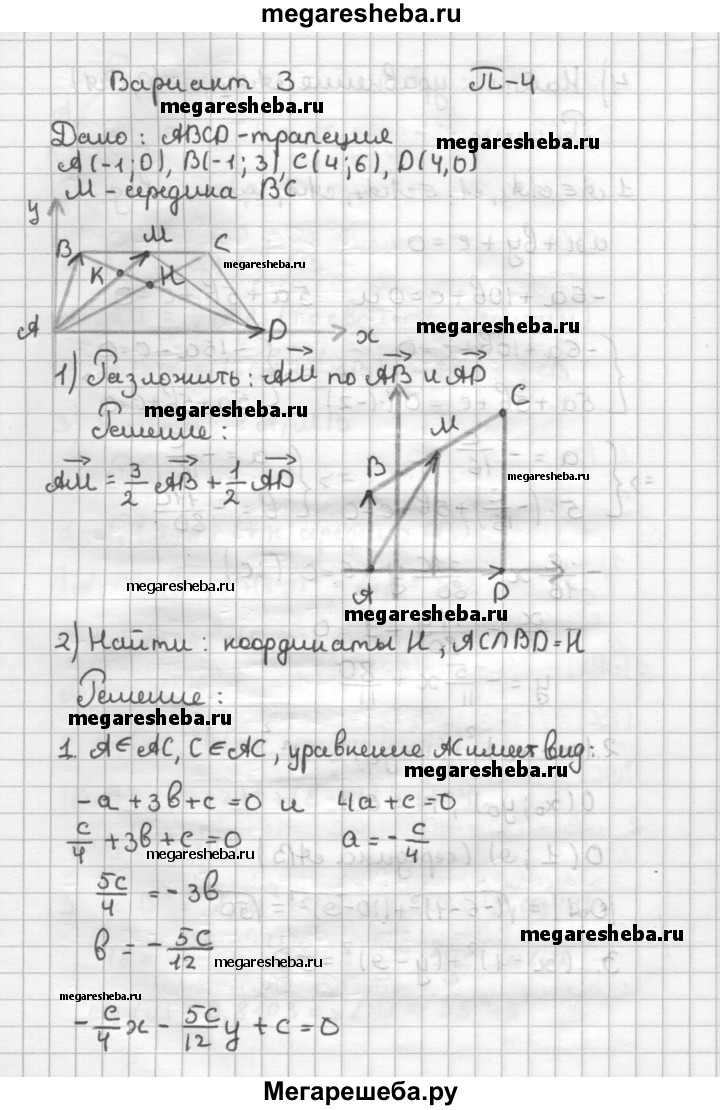 megaresheba.ru
Вариант 3 П-4
megaresheba.ru
Дано: ABCD - трапеция
megaresheba.ru
A(-1;0), B(-1;3), C(4;6), D(4,0)
M - середина BC
y
B M C
K H
megaresheba.ru
A D x
megaresheba.ru
1) Разложить: AM по AB и AD
megaresheba.ru
Решение:
AM = 3/2 AB + 1/2 AD
C
M
B
megaresheba.ru
A D
megaresheba.ru
megaresheba.ru
2) Найти: координаты H, AC∩BD=H
Решение:
megaresheba.ru
1. A∈AC, C∈AC, уравнение AC имеет вид:
megaresheba.ru
-a + 3b + c = 0 и 4a + c = 0
c/4 + 3b + c = 0 a = -c/4
megaresheba.ru
5c/4 = -3b
b = -5c/12
megaresheba.ru
megaresheba.ru
megaresheba.ru
-c/4 x - 5c/12 y + c = 0
Мегарешеба.ру